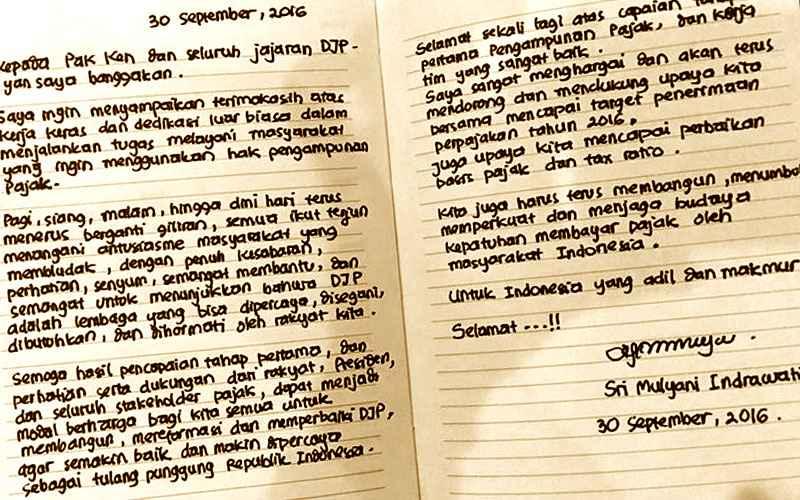 30 September, 2016
Kepada Pak Ken dan seluruh jajaran DJP -
yan saya banggakan.
Saya ingin menyampaikan terimakasih atas
kerja keras dan dedikasi luar biasa dalam
menjalankan tugas melayani masyarakat
yang ingin menggunakan hak pengampunan
Pajak.
Pagi, siang, malam, hingga dini hari terus
menerus berganti giliran, semua ikut terjun
menangani antusiasme masyarakat yang
membludak, dengan penuh kesabaran,
perhatian, senyum, semangat membantu, dan
semangat untuk menunjukkan bahwa DJP
adalah lembaga yang bisa dipercaya, disegani,
dibutuhkan, dan dihormati oleh rakyat kita.
Semoga hasil pencapaian tahap pertama, dan
perhatian serta dukungan dari rakyat, Presiden,
dan seluruh stakeholder pajak, dapat menjadi
modal berharga bagi kita semua untuk
membangun, mereformasi dan memperbaiki DJP,
agar semakin baik dan makin dipercaya
sebagai tulang punggung Republik Indonesia.
Selamat sekali lagi atas capaian
pertama Pengampunan Pajak, dan kerja
tim yang sangat baik.
Saya sangat menghargai dan akan terus
mendorong dan mendukung upaya kita
bersama mencapai target penerimaan
perpajakan tahun 2016.
Juga upaya kita mencapai perbaikan
basis pajak dan tax ratio.
Kita juga harus terus membangun, menumbu
memperkuat dan menjaga budaya
kepatuhan membayar pajak oleh
masyarakat Indonesia.
Untuk Indonesia yang adil dan makmur
Selamat ...!!
Sri Mulyani Indrawati
30 September, 2016.